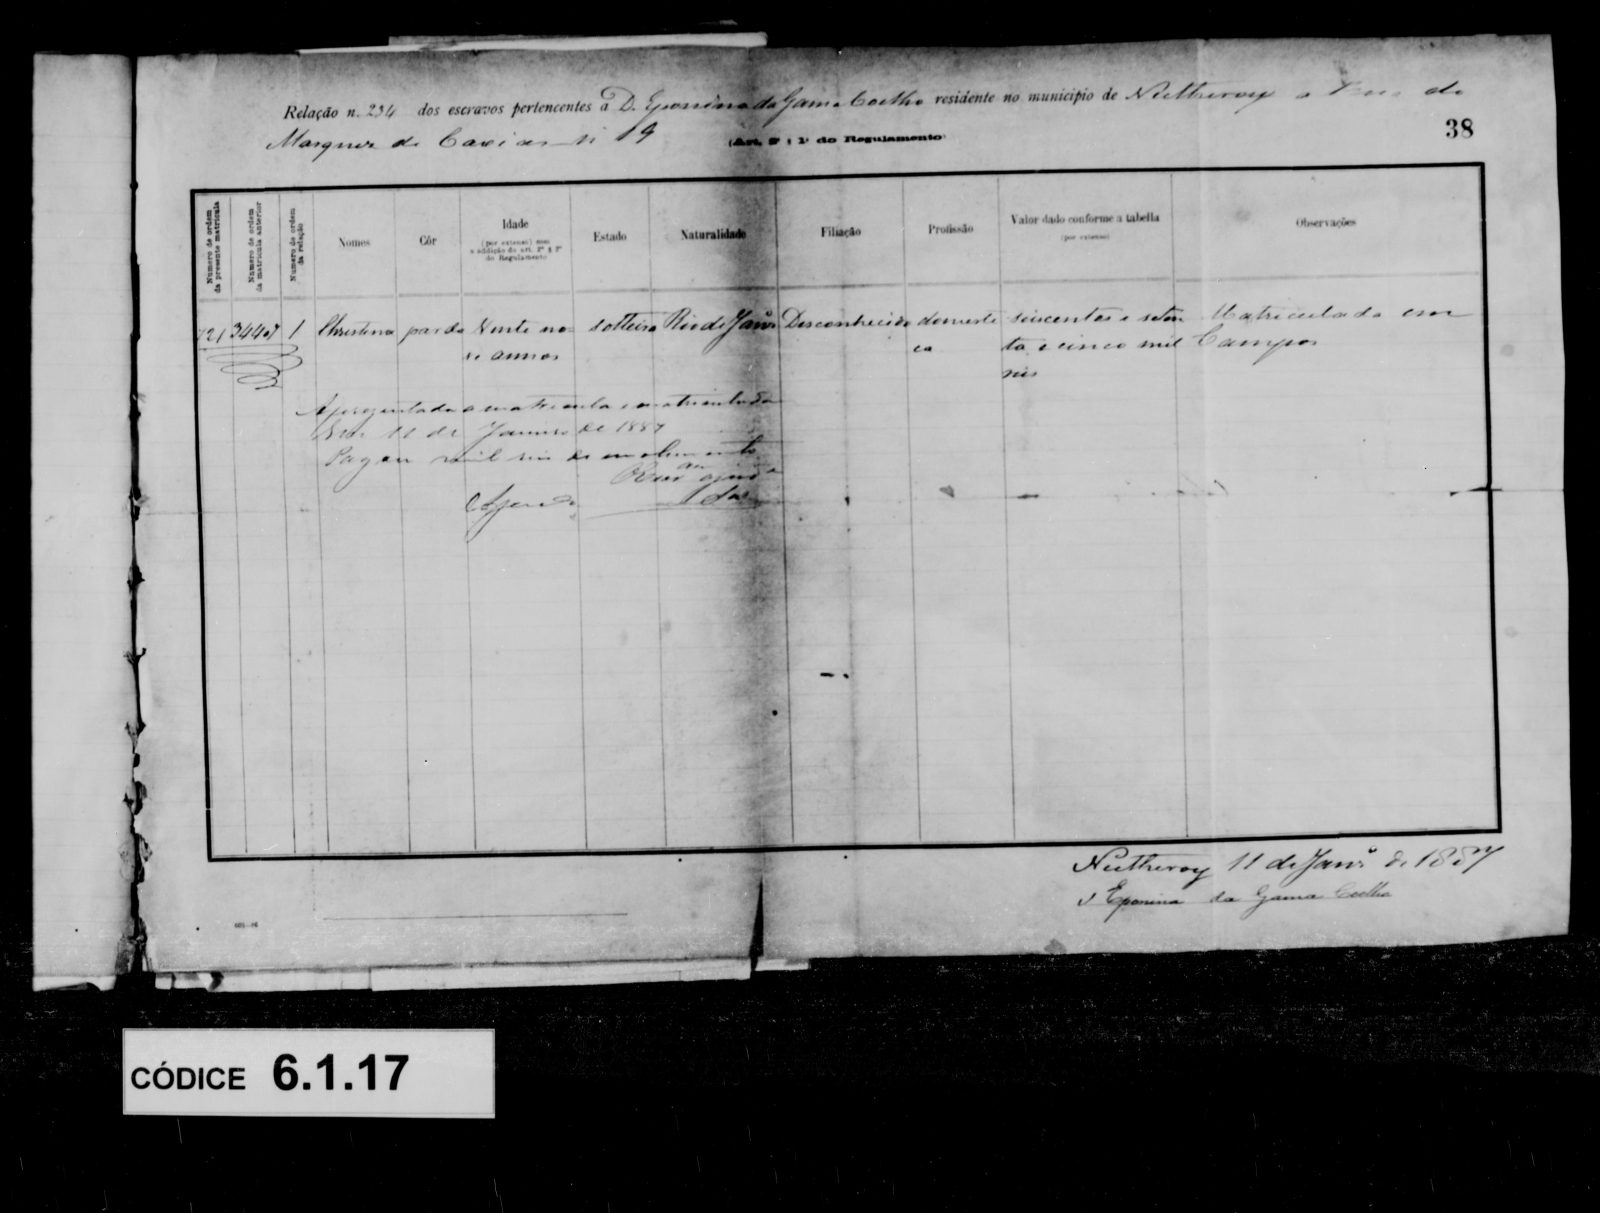 Relação n. 234 dos escravos pertencentes a D. Eponina da Gama Coelho residente no municipio de Nictheroy a Rua do
Marquez de Caxias N 19
(Art. 3º § 1º do Regulamento)
38
Numero de ordem da presente matricula
Numero de ordem da matricula anterior
Numero de ordem da relação
Nomes
Côr
Idade
(por extenso) com
a addição do art. 2º § 2º
do Regulamento
Estado
Naturalidade
Filiação
Profissão
Valor dado conforme a tabella
(por extenso)
Observações
721 3447 1 Christina parda Vinte no- solteira Rio de Janrº Desconhecida domesti seiscentos e seten Matriculada em
ve annos ca ta e cinco mil Campos
reis
Apresentada a matricula e matriculada
em 11 de Janeiro de 1887
Pagou mil reis de emolumento
Nictheroy 11 de Janrº de 1887
Eponina da Gama Coelho
CÓDICE 6.1.17